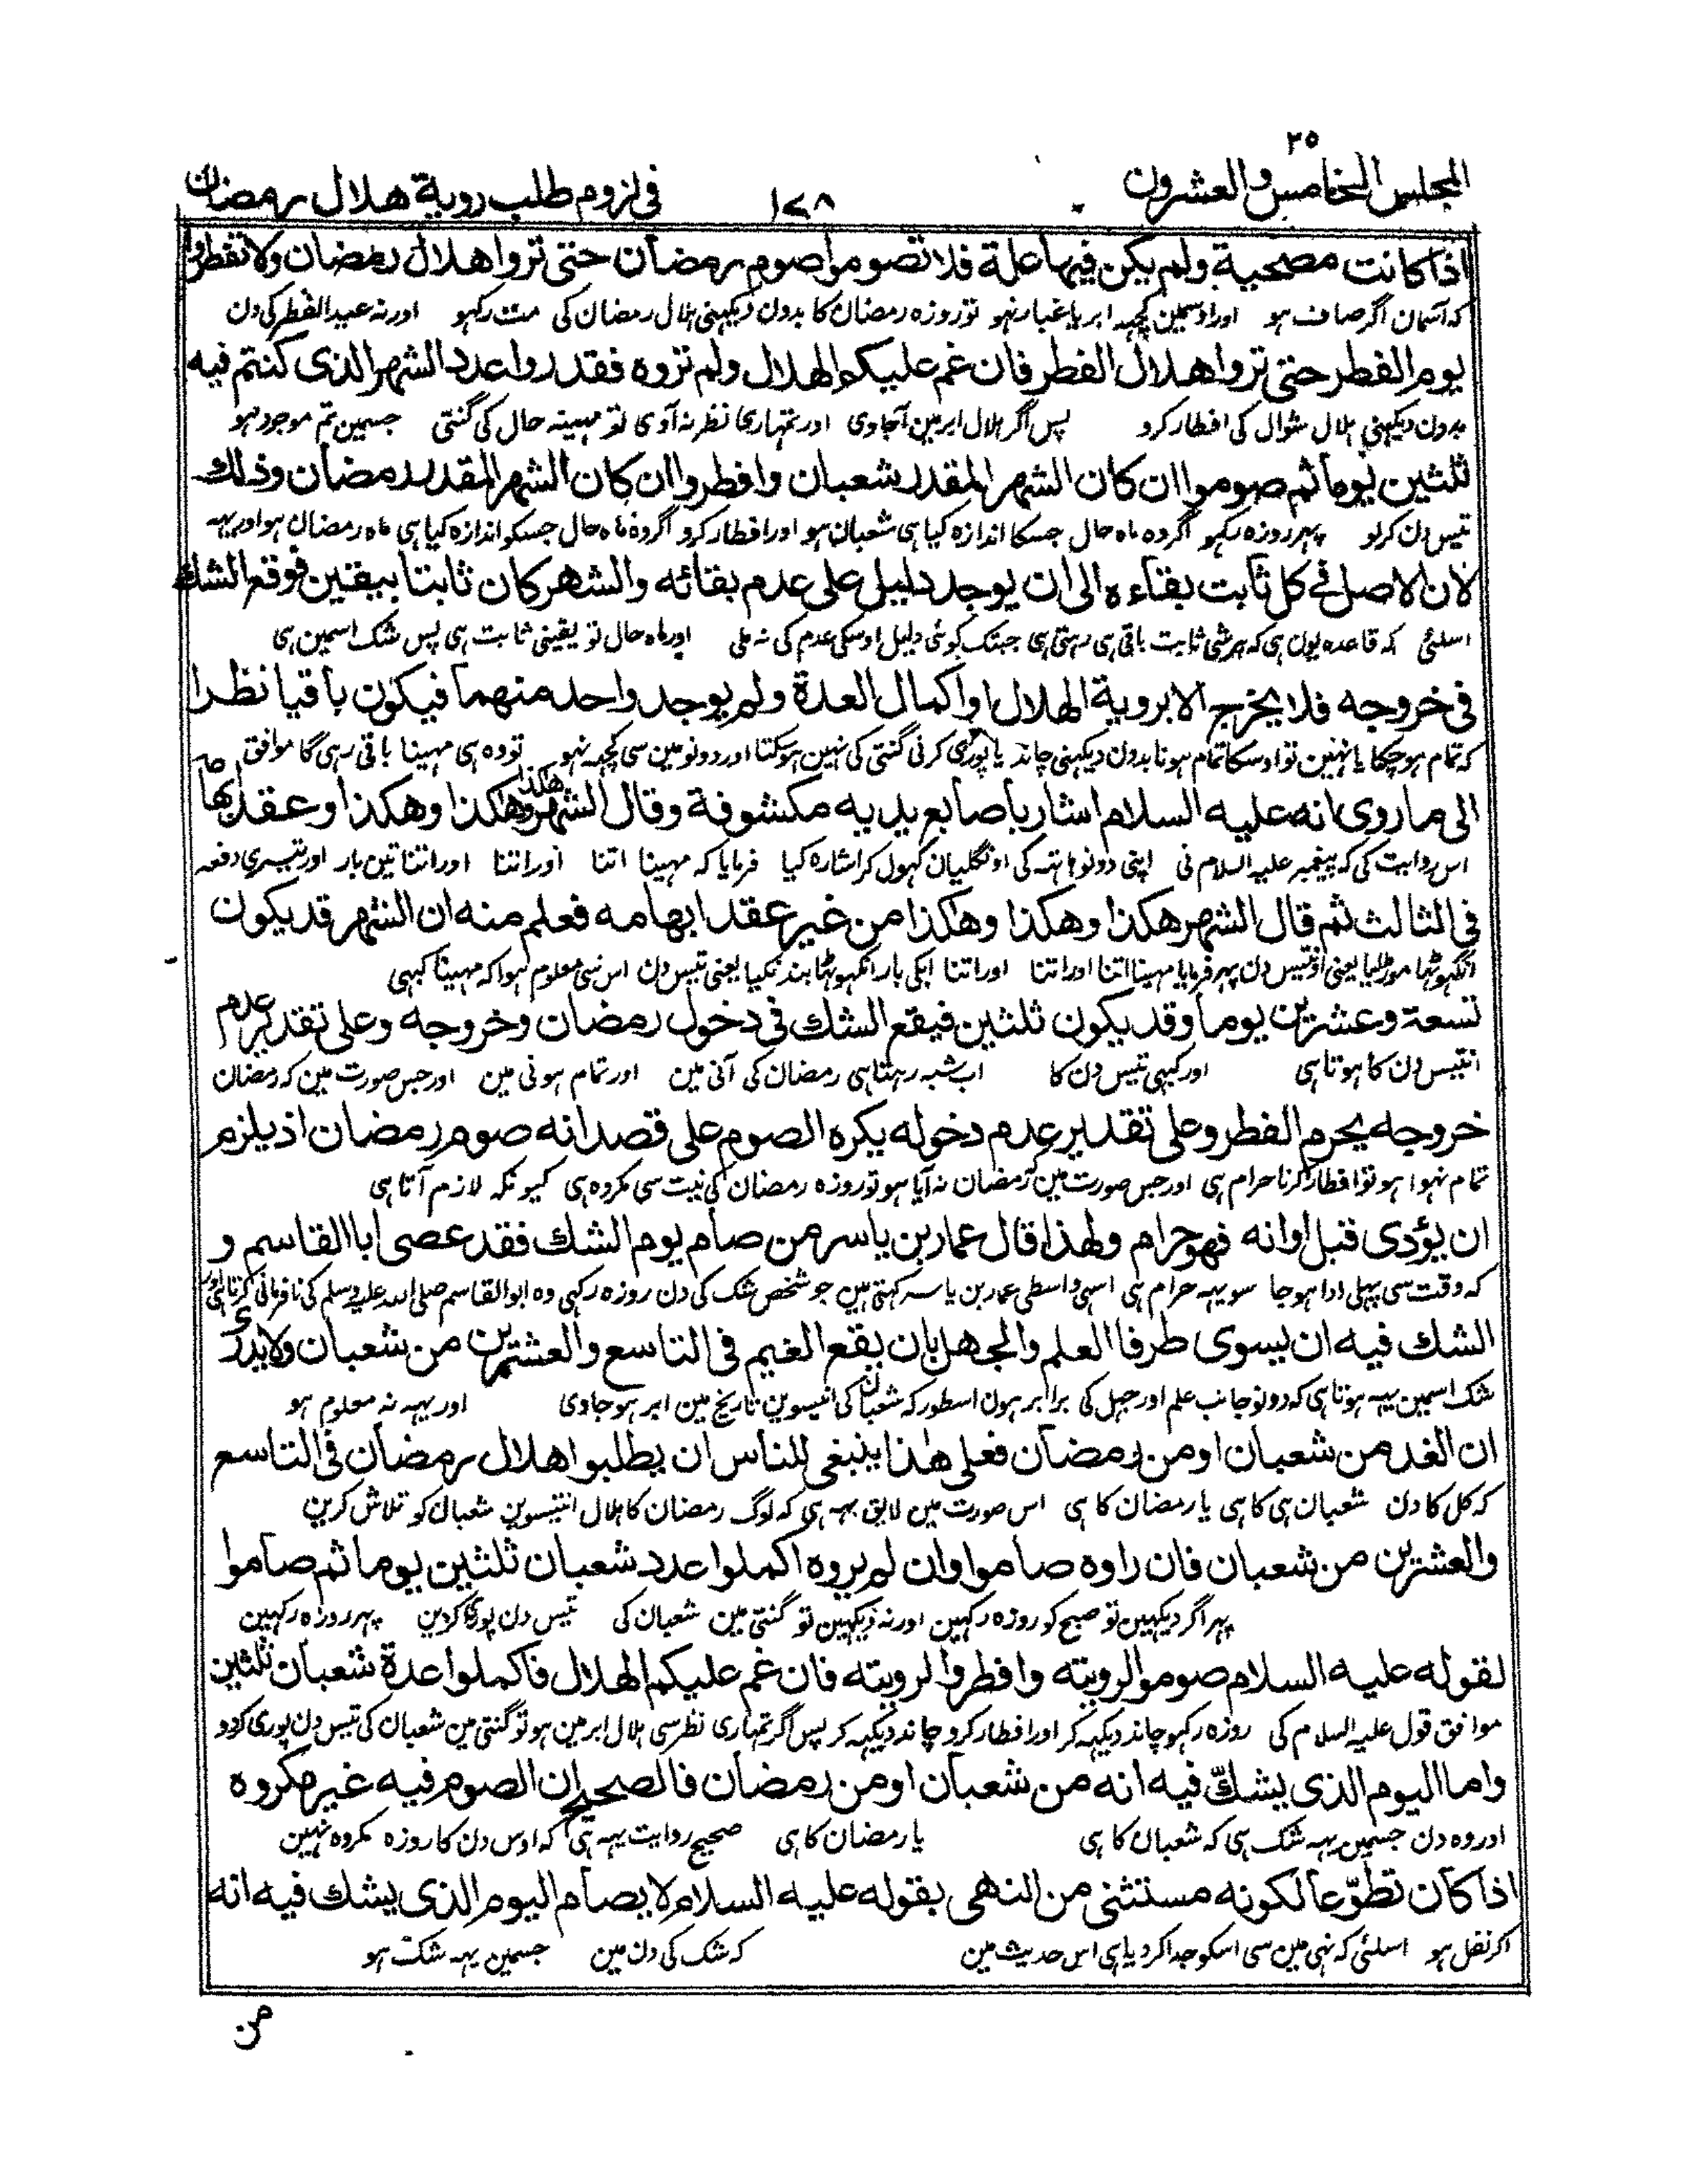 ٢٥
المجلس الخامس والعشرون
١٧٨
فی لزوم طلب رویة هلال رمضان
اذا كانت مصحیة ولم یكن فیها علة فلا تصوموا صوم رمضان حتی تروا هلال رمضان ولا تفطروا
که آسمان اگر صاف ہو اور اوسمین کچہہ ابر یا غبار نہو تو روزہ رمضان کا بدون دیکہنی ہلال رمضان کی مت رکہو اور نہ عید الفطر کی دن
یوم الفطر حتی تروا هلال الفطر فان غم علیكم الهلال ولم تروه فقدروا عدد الشهر الذی كنتم فیه
بدون دیکہنی ہلال شوال کی افطار کرو پس اگر ہلال ابر مین آجاوی اور تمہاری نظر نہ آوی تو مہینہ حال کی گنتی جسمین تم موجود ہو
ثلثین یوما ثم صوموا ان كان الشهر المقدر شعبان وافطروا ان كان الشهر المقدر رمضان وذلك
تیس دن کرلو پہر روزہ رکہو اگر وہ ماہ حال جسکا اندازہ کیا ہی شعبان ہو اور افطار کرو اگر وہ ماہ حال جسکو اندازہ کیا ہی ماہ رمضان ہو اور یہہ
لان الاصل فی كل ثابت بقاءه الی ان یوجد دلیل علی عدم بقائه والشهر كان ثابتا بیقین فوقع الشك
اسلئی کہ قاعدہ یون ہی کہ ہر شی ثابت باقی ہی رہتی ہی جبتک کوئی دلیل اوسکی عدم کی نہ ملی اور ماہ حال تو یقینی ثابت ہی پس شک اسمین ہی
فی خروجه فلا یخرج الا برویة الهلال او اكمال العدة ولم یوجد واحد منهما فیكون باقیا نظرا
کہ تمام ہو چکا یا نہین تو اوسکا تمام ہونا بدون دیکہنی چاند یا پوری کرنی گنتی کی نہین ہو سکتا اور دونو مین سی کچہہ نہو تو وہ ہی مہینا باقی رہی گا موافق
الی ما روی انه علیه السلام اشار باصابع یدیه مكشوفة وقال الشهر هكذا وهكذا وهكذا وعقد ابهامه
اس روایت کی کہ پیغمبر علیہ السلام نی اپنی دونو ہاتہہ کی اونگلیان کہول کر اشارہ کیا فرمایا کہ مہینا اتنا اور اتنا اور اتنا تین بار اور تیسری دفعہ
فی الثالث ثم قال الشهر هكذا وهكذا وهكذا من غیر عقد ابهامه فعلم منه ان الشهر قد یكون
انگہوٹہا موڑلیا یعنی اونتیس دن پہر فرمایا مہینا اتنا اور اتنا اور اتنا ابکی بار انگہوٹہا بند نکیا یعنی تیس دن اس سی معلوم ہوا کہ مہینا کبہی
تسعة وعشرین یوما وقد یكون ثلثین فیقع الشك فی دخول رمضان وخروجه وعلی تقدیر عدم
انتیس دن کا ہوتا ہی اور کبہی تیس دن کا اب شبہ رہتا ہی رمضان کی آنی مین اور تمام ہونی مین اور جس صورت مین کہ رمضان
خروجه یحرم الفطر وعلی تقدیر عدم دخوله یكره الصوم علی قصد انه صوم رمضان اذ یلزم
تمام نہوا ہو تو افطار کرنا حرام ہی اور جس صورت مین رمضان نہ آیا ہو تو روزہ رمضان کی نیت سی مکروہ ہی کیونکہ لازم آتا ہی
ان یؤدی قبل اوانه فهو حرام ولهذا قال عمار بن یاسر من صام یوم الشك فقد عصی ابا القاسم و
کہ وقت سی پہلی ادا ہو جا سو یہہ حرام ہی اسی واسطی عمار بن یاسر کہتی ہین جو شخص شک کی دن روزہ رکہی وہ ابو القاسم صلی اللہ علیہ وسلم کی نافرمانی کرتا ہی اور
الشك فیه ان یسوی طرفا العلم والجهل بان یقع الغیم فی التاسع والعشرین من شعبان ولا یدری
شک اسمین یہہ ہوتا ہی کہ دونو جانب علم اور جہل کی برابر ہون اسطور کہ شعبان کی انتیسوین تاریخ مین ابر ہو جاوی اور یہہ نہ معلوم ہو
ان الغد من شعبان او من رمضان فعلی هذا ینبغی للناس ان یطلبوا هلال رمضان فی التاسع
کہ کل کا دن شعبان ہی کا ہی یا رمضان کا ہی اس صورت مین لایق یہہ ہی کہ لوگ رمضان کا ہلال انتیسوین شعبان کو تلاش کرین
والعشرین من شعبان فان راوه صاموا وان لم یروه اكملوا عدد شعبان ثلثین یوما ثم صاموا
پہر اگر دیکہین تو صبح کو روزہ رکہین اور نہ دیکہین تو گنتی مین شعبان کی تیس دن پوری کردین پہر روزہ رکہین
لقوله علیه السلام صوموا لرویته وافطروا لرویته فان غم علیكم الهلال فاكملوا عدة شعبان ثلثین
موافق قول علیہ السلام کی روزہ رکہو چاند دیکہہ کر اور افطار کرو چاند دیکہہ کر پس اگر تمہاری نظر سی ہلال ابر مین ہو تو گنتی مین شعبان کی تیس دن پوری کردو
واما الیوم الذی یشكّ فیه انه من شعبان او من رمضان فالصحیح ان الصوم فیه غیر مكروه
اور وہ دن جسمین یہہ شک ہی کہ شعبان کا ہی یا رمضان کا ہی صحیح روایت یہہ ہی کہ اوس دن کا روزہ مکروہ نہین
اذا كان تطوّعا لكونه مستثنی من النهی بقوله علیه السلام لا یصام الیوم الذی یشك فیه انه
اگر نفل ہو اسلئی کہ نہی مین سی اسکو جدا کر دیا ہی اس حدیث مین کہ شک کی دن مین جسمین یہہ شک ہو
من